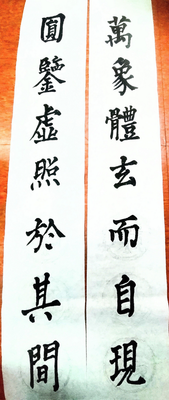 萬象體玄而自現
圓鑒虛照於其間